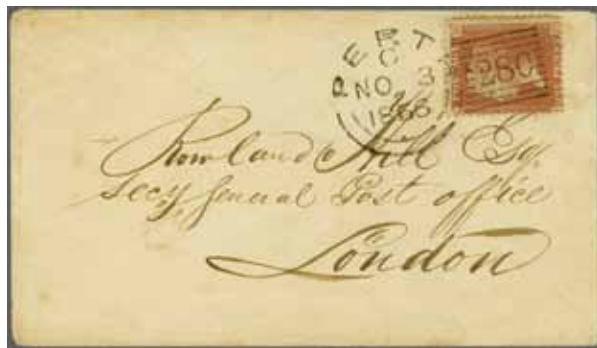 PERTH
C
NO 3
1863
280
Rowland Hill Esq
Secy General Post office
London